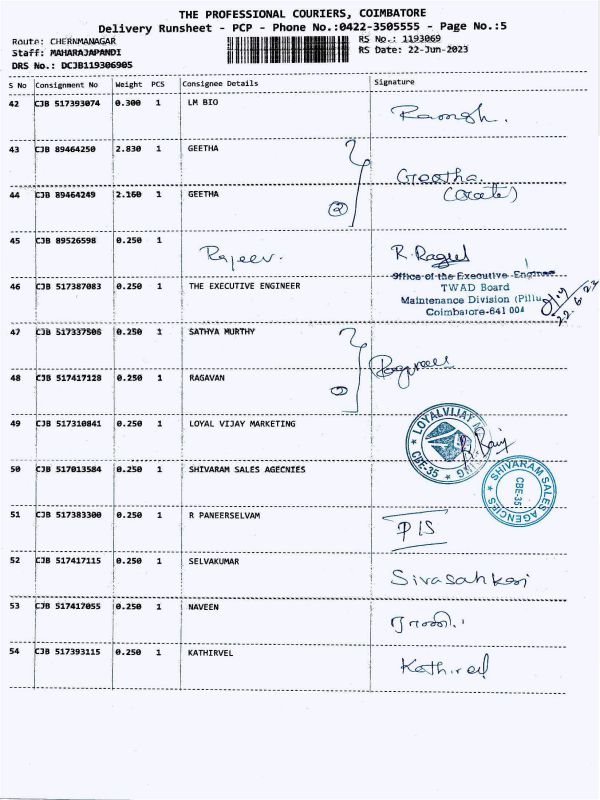 THE PROFESSIONAL COURIERS, COIMBATORE
Delivery Runsheet - PCP - Phone No.:0422-3505555 - Page No.:5
Route: CHERNMANAGAR
RS No.: 1193069
Staff: MAHARAJAPANDI
RS Date: 22-Jun-2023
DRS No.: DCJB119306905
S No Consignment No Weight PCS Consignee Details Signature
42 CJB 517393074 0.300 1 LM BIO Ramesh.
43 CJB 89464250 2.830 1 GEETHA
Geetha.
44 CJB 89464249 2.160 1 GEETHA
2
45 CJB 89526598 0.250 1 Rajeev. R. Ragul
Office of the Executive Engineer
46 CJB 517387083 0.250 1 THE EXECUTIVE ENGINEER TWAD Board
Maintenance Division (Pillu
Coimbatore-641 004
22.6.23
47 CJB 517337506 0.250 1 SATHYA MURTHY
48 CJB 517417128 0.250 1 RAGAVAN
2
49 CJB 517310841 0.250 1 LOYAL VIJAY MARKETING LOYALVIJAY CBE-35
50 CJB 517013584 0.250 1 SHIVARAM SALES AGECNIES SHIVARAM SALES AGENCIES CBE-35
51 CJB 517383300 0.250 1 R PANEERSELVAM P/S
52 CJB 517417115 0.250 1 SELVAKUMAR Sivasankari
53 CJB 517417055 0.250 1 NAVEEN
54 CJB 517393115 0.250 1 KATHIRVEL Kathirvel